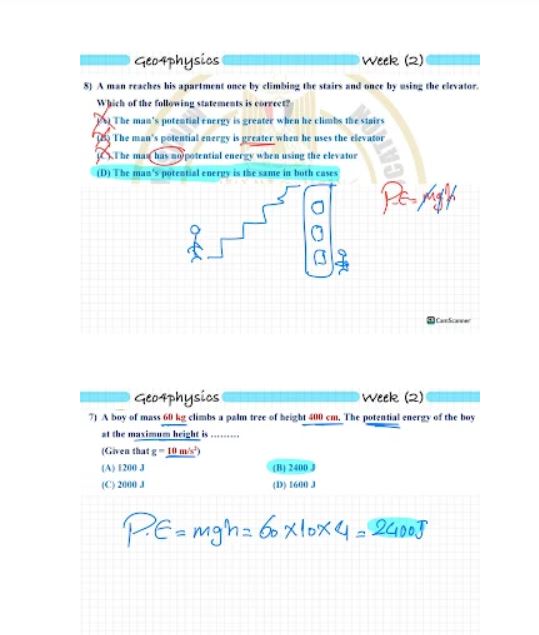 Geo4physics Week (2)
8) A man reaches his apartment once by climbing the stairs and once by using the elevator.
Which of the following statements is correct?
(A) The man's potential energy is greater when he climbs the stairs
(B) The man's potential energy is greater when he uses the elevator
(C) The man has no potential energy when using the elevator
(D) The man's potential energy is the same in both cases
P.E = mgh
CamScanner
Geo4physics Week (2)
7) A boy of mass 60 kg climbs a palm tree of height 400 cm. The potential energy of the boy
at the maximum height is .........
(Given that g = 10 m/s²)
(A) 1200 J (B) 2400 J
(C) 2000 J (D) 1600 J
P.E = mgh = 60 x 10 x 4 = 2400J